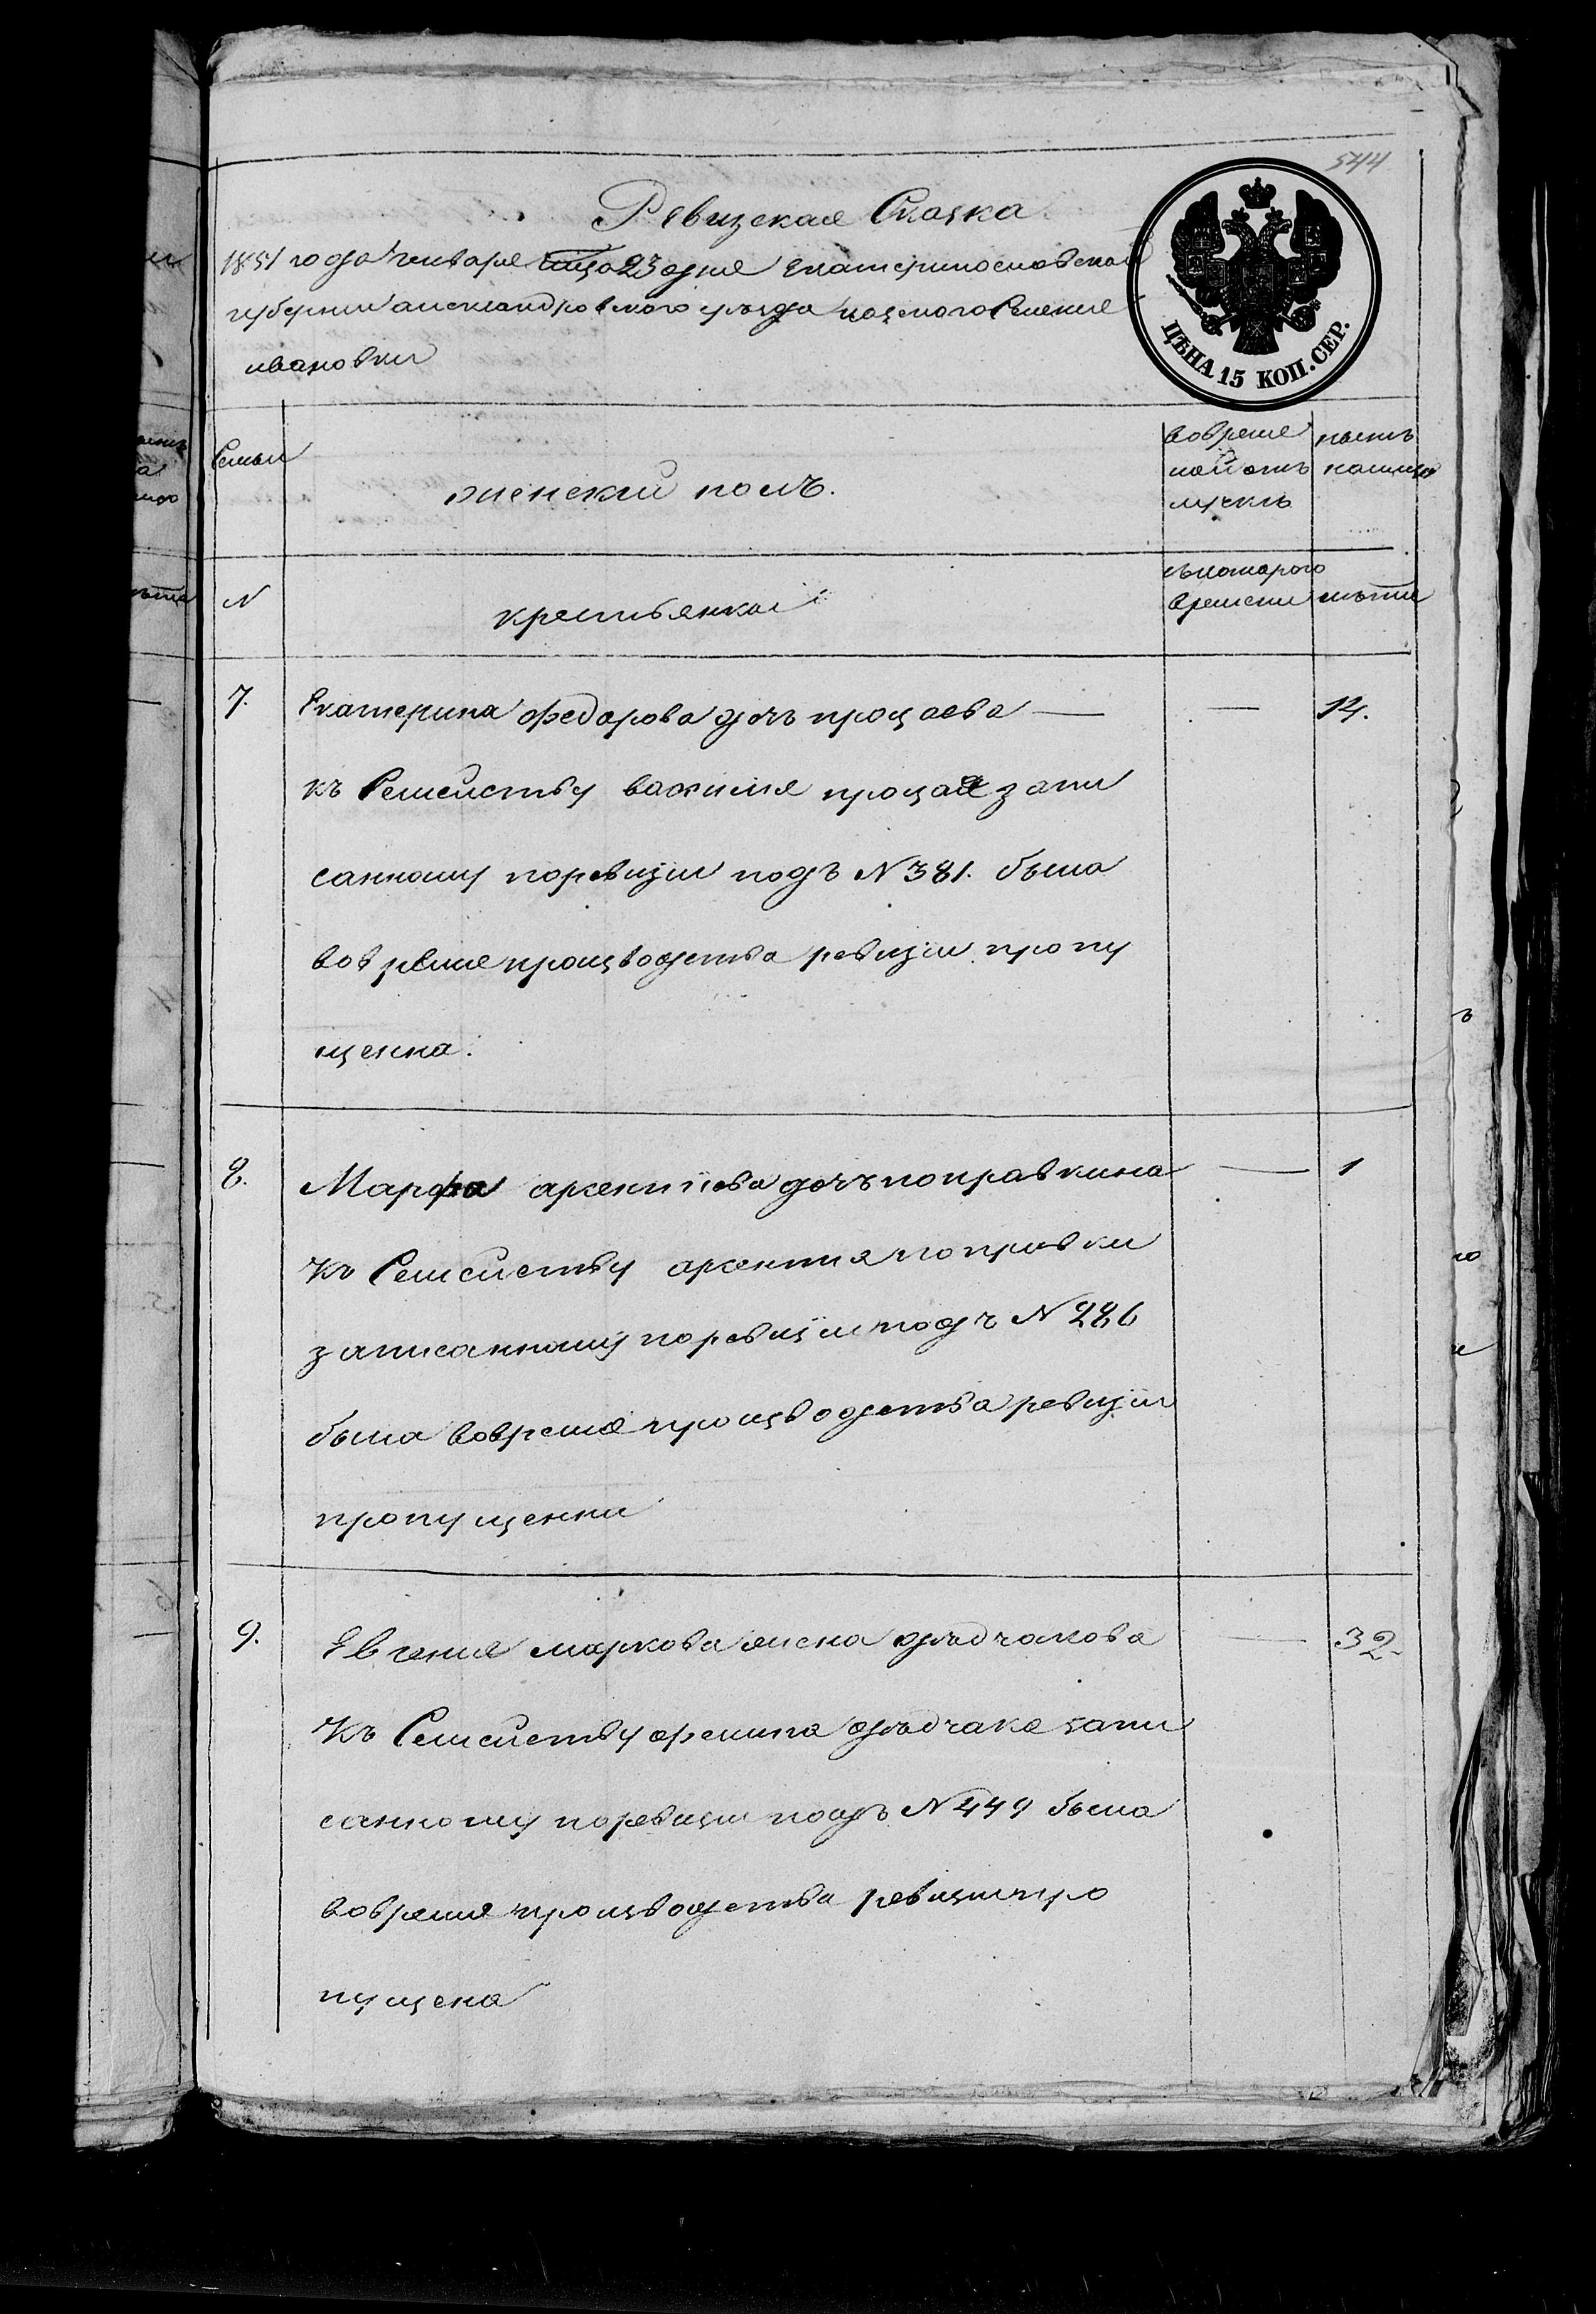 544
Ревизская Сказка
1851 года генваря 23 дня Екатеринословской
губернии александровского уезда казеного Селения
ивановки
ЦѢНА 15 КОП. СЕР.
Семьи
женский полъ.
вовреме
ной отъ
лучкѣ
ныне
налицо
N
крестьянкаi
съ которого
времени
лѣта
7.
Екатерина федарова дочь процаева — — 14.
къ Семейству василия процая запи
санному поревизiи подъ N 381. была
вовремя производства ревизiи пропу
щенна.
8.
Марфа арсентiева дочь поправкина — 1
къ Семейству арсентия поправки
записанному поревизiи подъ N 286
была вовремя производства ревизiи
пропущенна
9.
Евгения маркова жена дядчакова — 32
къ Семейству дядчака запи
санному поревизiи подъ N 449 была
вовремя производства ревизiи про
пущена